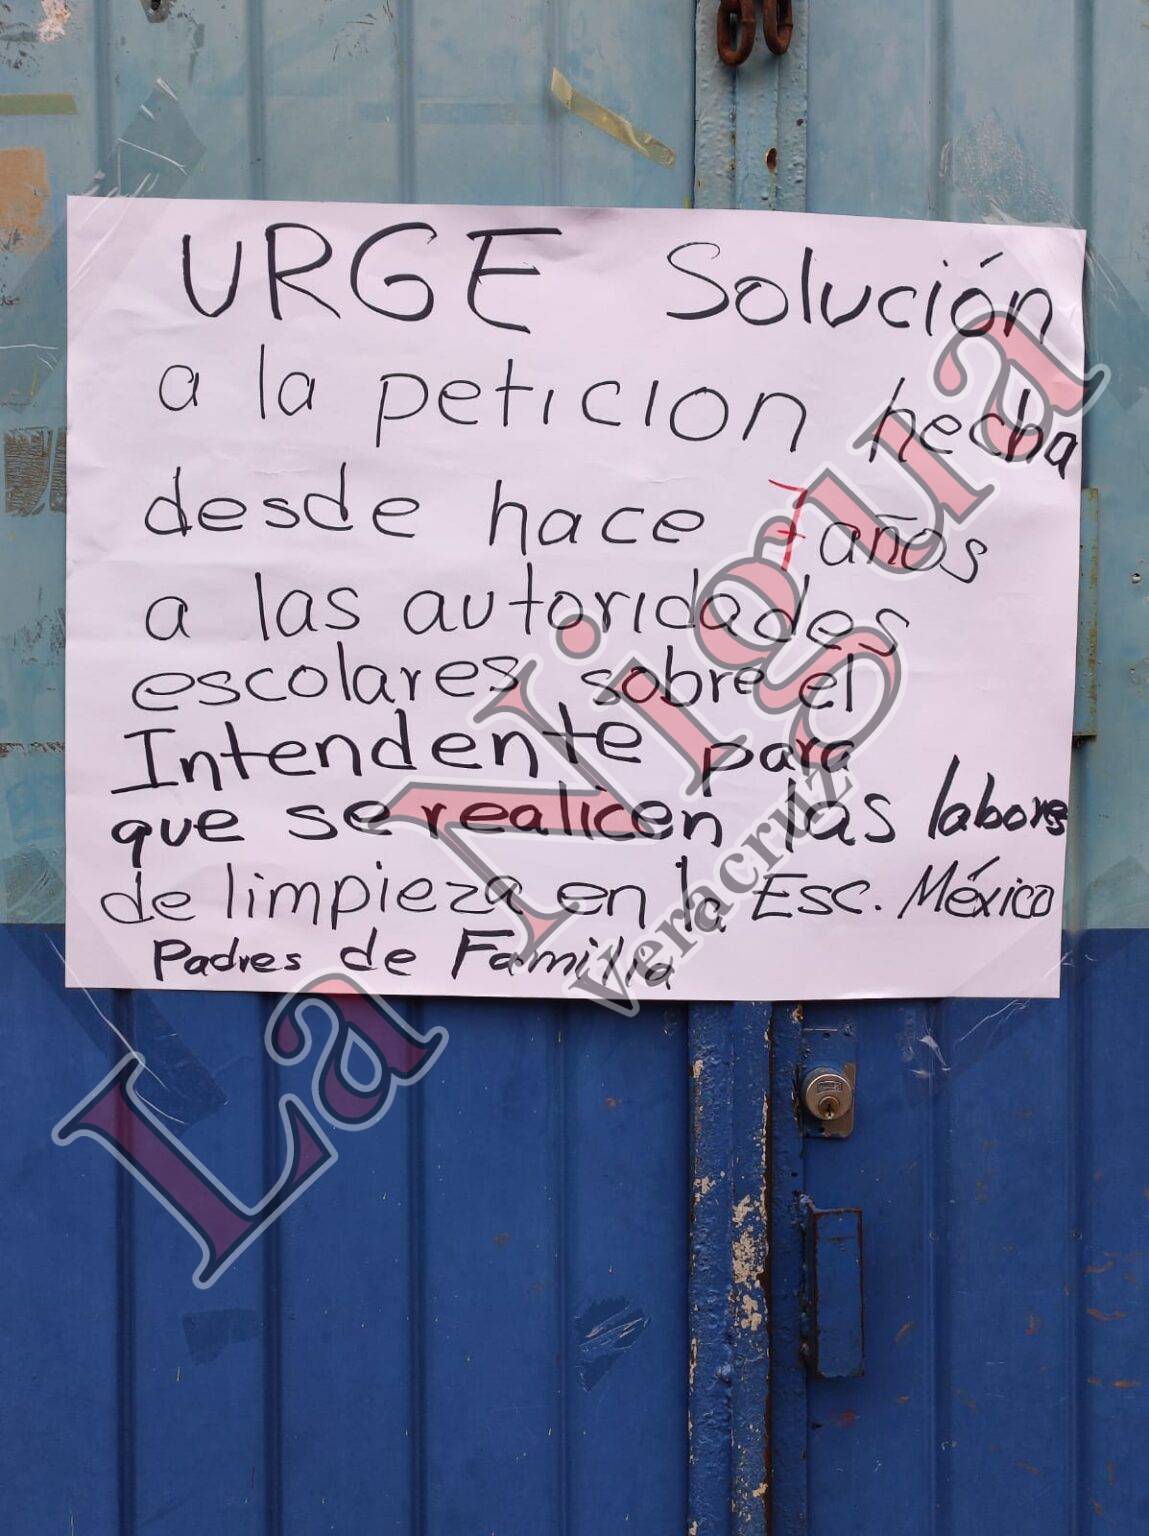 URGE Solución
a la peticion hecha
desde hace 7 años
a las autoridades
escolares sobre el
Intendente para
que se realicen las labores
de limpieza en la Esc. México
Padres de Familia
La Nigua
Veracruz